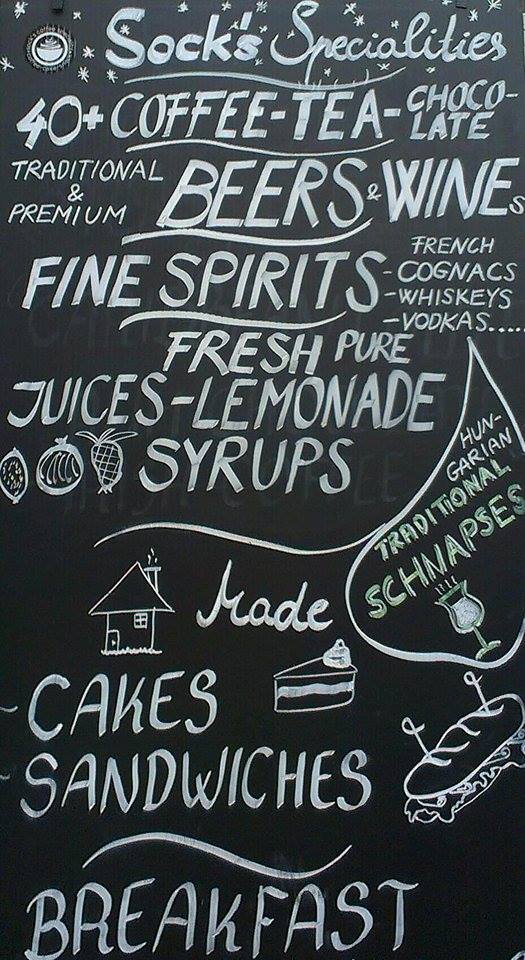 Sock's Specialities
40+ COFFEE-TEA-CHOCO-
LATE
TRADITIONAL
&
PREMIUM
BEERS & WINEs
FINE SPIRITS
FRENCH
-COGNACS
-WHISKEYS
-VODKAS.....
FRESH PURE
JUICES-LEMONADE
SYRUPS
HUN-
GARIAN
TRADITIONAL
SCHNAPSES
Made
CAKES
SANDWICHES
BREAKFAST